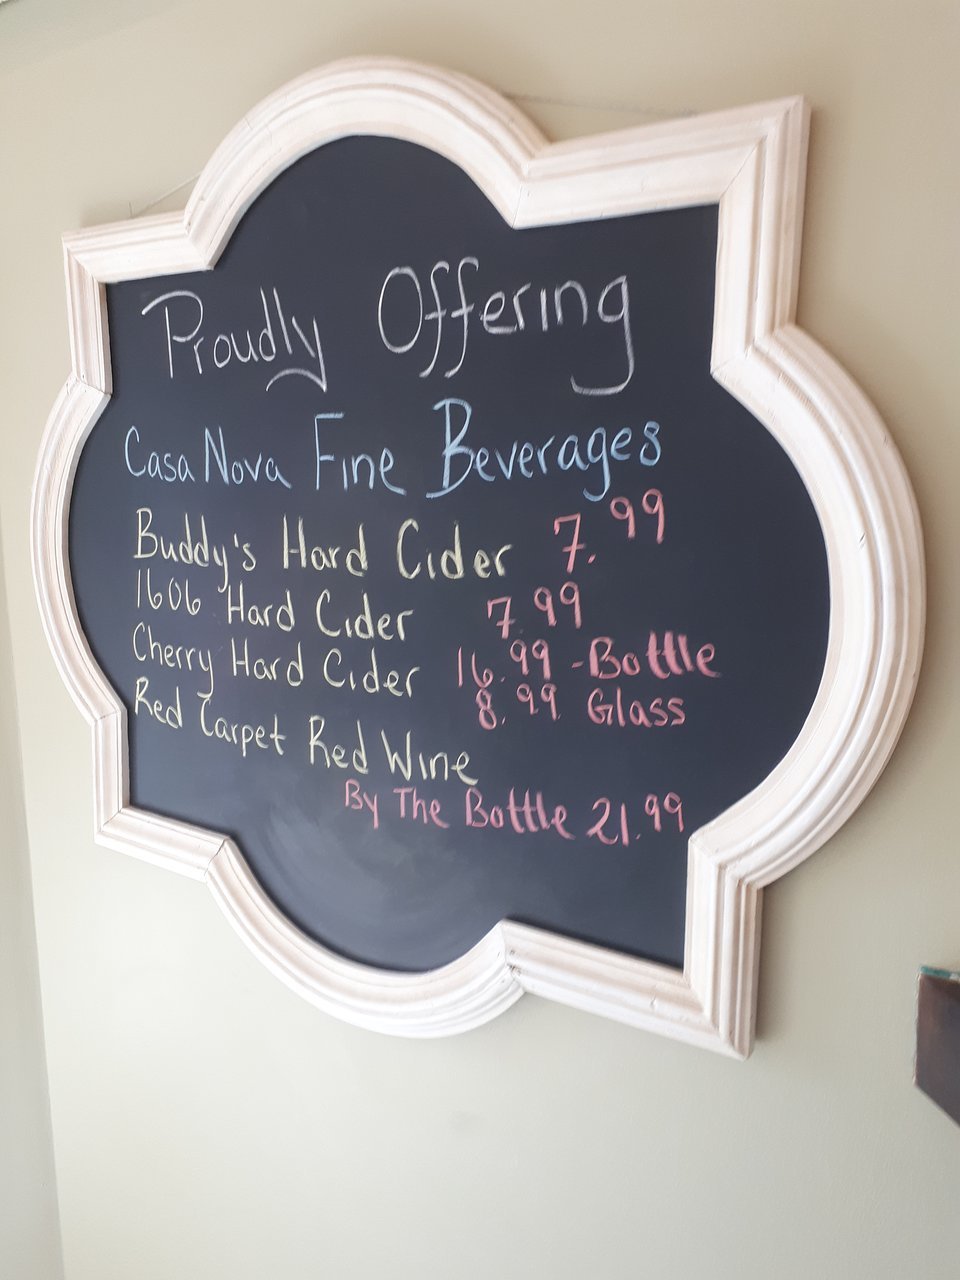 Proudly Offering
Casa Nova Fine Beverages
Buddy's Hard Cider 7.99
1606 Hard Cider 7.99
Cherry Hard Cider 16.99 - Bottle
8.99 Glass
Red Carpet Red Wine
By The Bottle 21.99